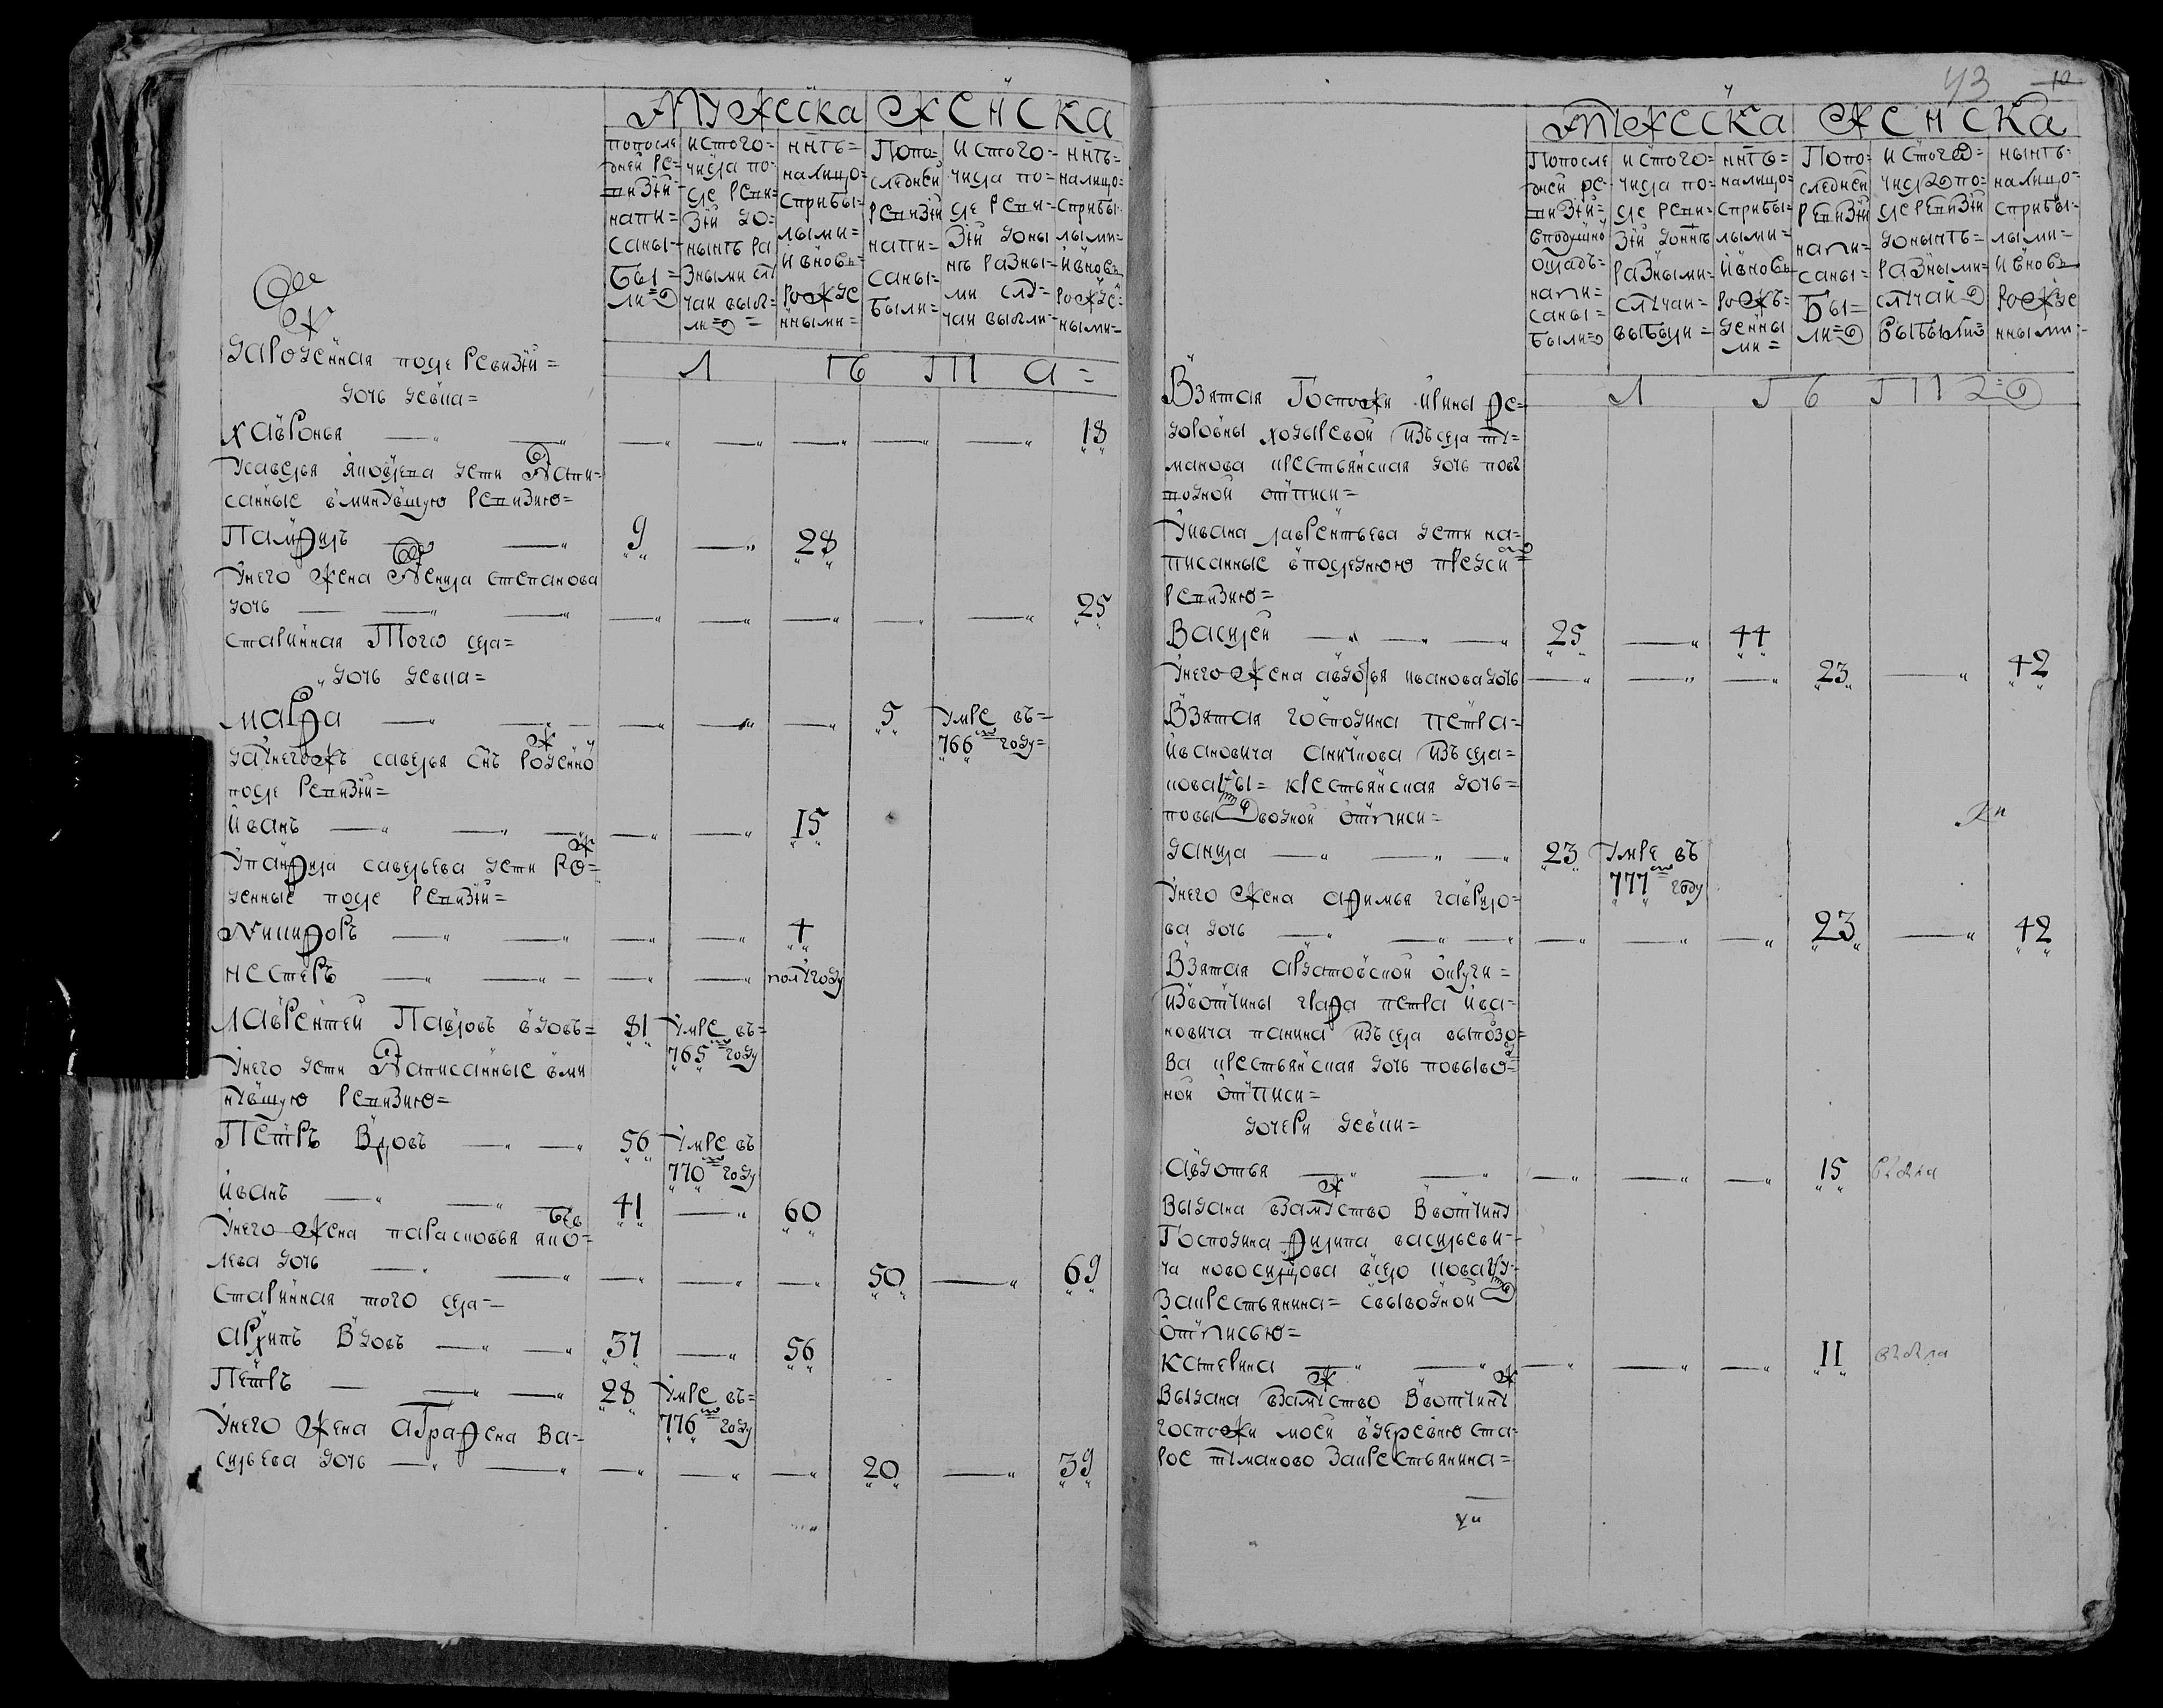 Мужеска женска
попосле дней ревизии написаны были
истого числа после ревизии до ныне разными случаи выбыли
ныне налицо сприбылыми ивновь рожденными
Попоследней ревизии написаны были
истого числа после ревизии доныне разными случаи выбыли
ныне налицо сприбылыми ивновь рожденными
Лета
рожденная после ревизии
дочь девка
хавронья 18
Усавелья яковлева дети написанные вминувшую ревизию
Памфилъ 9 28
Унего жена Аксинья степанова
дочь 25
старинная Того села
дочь девка
марфа 5 умре въ 766м году
иванъ 15
Упамфила савельева дети рожденные после ревизии
Никифоръ 4
нестеръ полугоду
Лаврентей Павловъ вдовъ 81 умре въ 765м году
Унего дети Написанные вминувшую ревизию
Петръ Вдовъ 56 умре въ 770м году
иванъ 41 60
Унего жена парасковья яковлева дочь 50 69
старинная того села
архипъ Вдовъ 37 56
Петръ 28 умре въ 776м году
Унего жена аграфена васильева дочь 20 39
43 10
Мужеска женска
Попосле дней ревизии сподушной окладъ написаны были
истого числа после ревизии доныне разными случаи выбыли
ныне налицо сприбылыми ивновь рожденными
Попоследней ревизии написаны были
истого числа после ревизии доныне разными случаи выбыли
ныне налицо сприбылыми ивновь рожденными
Лета
Взятая Госпожи ирины федоровны изъ села туманова крестьянская дочь повыводной отписи
Уивана лаврентьева дети написанные впоследнюю предсию ревизию
Василей 25 44
Унего жена авдотья иванова дочь 23 42
Взятая господина петра
ивановича аничкова изъ села
крестьянская дочь
повыводной отписи
данила 23 умре въ 777м году
Унего жена афимья гаврилова дочь 23 42
Взятая ардатовской округи
извотчины графа петра ивановича панина изъ села
крестьянская дочь повыводной отписи
дочери девки
авдотья 15
Выдана взамужство Ввотчину
Господина филипа васильевича новосильцова
закрестьянина свыводной
отписью
катерина 11
Выдана взамужство Ввотчину
госпожи моей вдеревню старое туманово закрестьянина